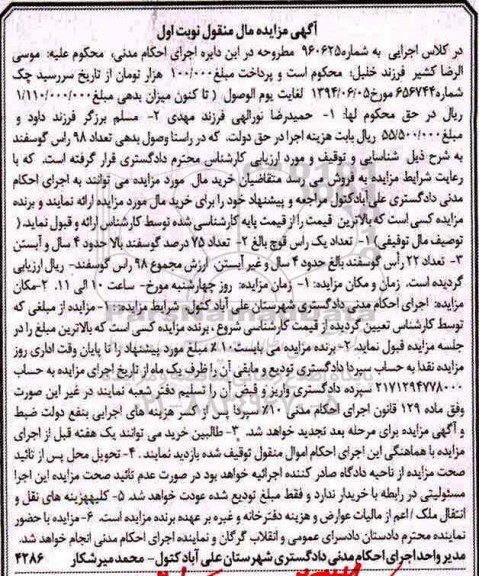 آگهی مزایده مال منقول نوبت اول
در کلاس اجرایی به شماره۹۶۰۶۲۵ مطروحه در این دایره اجرای احکام مدنی، محکوم علیه: موسی
الرضا کشیر فرزند خلیل: محکوم است و پرداخت مبلغ۱۰۰/۰۰۰ هزار تومان از تاریخ سررسید چک
شماره۶۵۶۷۴۴ مورخ۱۳۹۴/۰۶/۰۵ لغایت یوم الوصول ( تا کنون میزان بدهی مبلغ۱/۱۱۰/۰۰۰/۰۰۰
ریال در حق محکوم لها: ۱- حمیدرضا نورالهی فرزند مهدی ۲- مسلم برزگر فرزند داود و
مبلغ۵۵/۵۰۰/۰۰۰ ریال بابت هزینه اجرا در حق دولت، که در راستا وصول بدهی تعداد ۹۸ راس گوسفند
به شرح ذیل شناسایی و توقیف و مورد ارزیابی کارشناس محترم دادگستری قرار گرفته است. که با
رعایت شرایط مزایده به فروش می رسد متقاضیان خرید مال مورد مزایده می توانند به اجرای احکام
مدنی دادگستری علی آبادکتول مراجعه و پیشنهاد خود را برای خرید مال مورد مزایده ارائه نمایند و برنده
مزایده کسی است که بالاترین قیمت را از قیمت پایه کارشناسی شده توسط کارشناس ارائه و قبول نماید. (
توصیف مال توقیفی) ۱- تعداد یک راس قوچ بالغ ۲- تعداد ۷۵ درصد گوسفند بالا حدود ۴ سال و آبستن
۳- تعداد ۲۲ رأس گوسفند بالغ حدود ۴ سال و غیر آبستن. ارزش مجموع ۹۸ راس گوسفند- ریال ارزیابی
گردیده است. زمان و مکان مزایده: ۱- زمان مزایده: روز چهارشنبه مورخ- ساعت ۱۰ الی ۱۱. ۲-مکان
مزایده: اجرای احکام مدنی دادگستری شهرستان علی آباد کتول. شرایط مزایده: ۱- مزایده از مبلغی که
توسط کارشناس تعیین گردیده از قیمت کارشناسی شروع ، برنده مزایده کسی است که بالاترین مبلغ را در
جلسه مزایده قبول نماید. ۲- برنده مزایده می بایست ۱۰٪ مبلغ مورد پیشنهاد را تا پایان وقت اداری روز
مزایده نقدا به حساب سپردا دادگستری تودیع و مابقی آن را ظرف یک ماه از تاریخ اجرای مزایده به حساب
۲۱۷۱۲۹۴۷۷۸۰۰۰ سپرده دادگستری واریز و قبض آن را تسلیم دفتر شعبه نمایند در غیر این صورت
وفق ماده ۱۲۹ قانون اجرای احکام مدنی ۱۰٪ سپردا پس از کسر هزینه های اجرایی بنفع دولت ضبط
و آگهی مزایده برای مرحله بعد تجدید خواهد شد. ۳- طالبین خرید می توانند یک هفته قبل از اجرای
مزایده با هماهنگی این اجرای احکام اموال منقول توقیف شده بازدید نمایند . ۴- تحویل محل پس از تائید
صحت مزایده از ناحیه دادگاه صادر کننده اجرائیه خواهد بود در صورت عدم تائید صحت مزایده این اجرا
مسئولیتی در رابطه با خریدار ندارد و فقط مبلغ تودیع شده عودت خواهد شد. ۵- کلیههزینه های نقل و
انتقال ملک / اعم از مالیات عوارض و هزینه دفترخانه و غیره بر عهده برنده مزایده است. ۶- مزایده با حضور
نماینده محترم دادستان دادسرای عمومی و انقلاب گرگان و نماینده اجرای احکام مدنی انجام خواهد شد.
مدیر واحد اجرای احکام مدنی دادگستری شهرستان علی آباد کتول- محمد میرشکار ۴۲۸۶